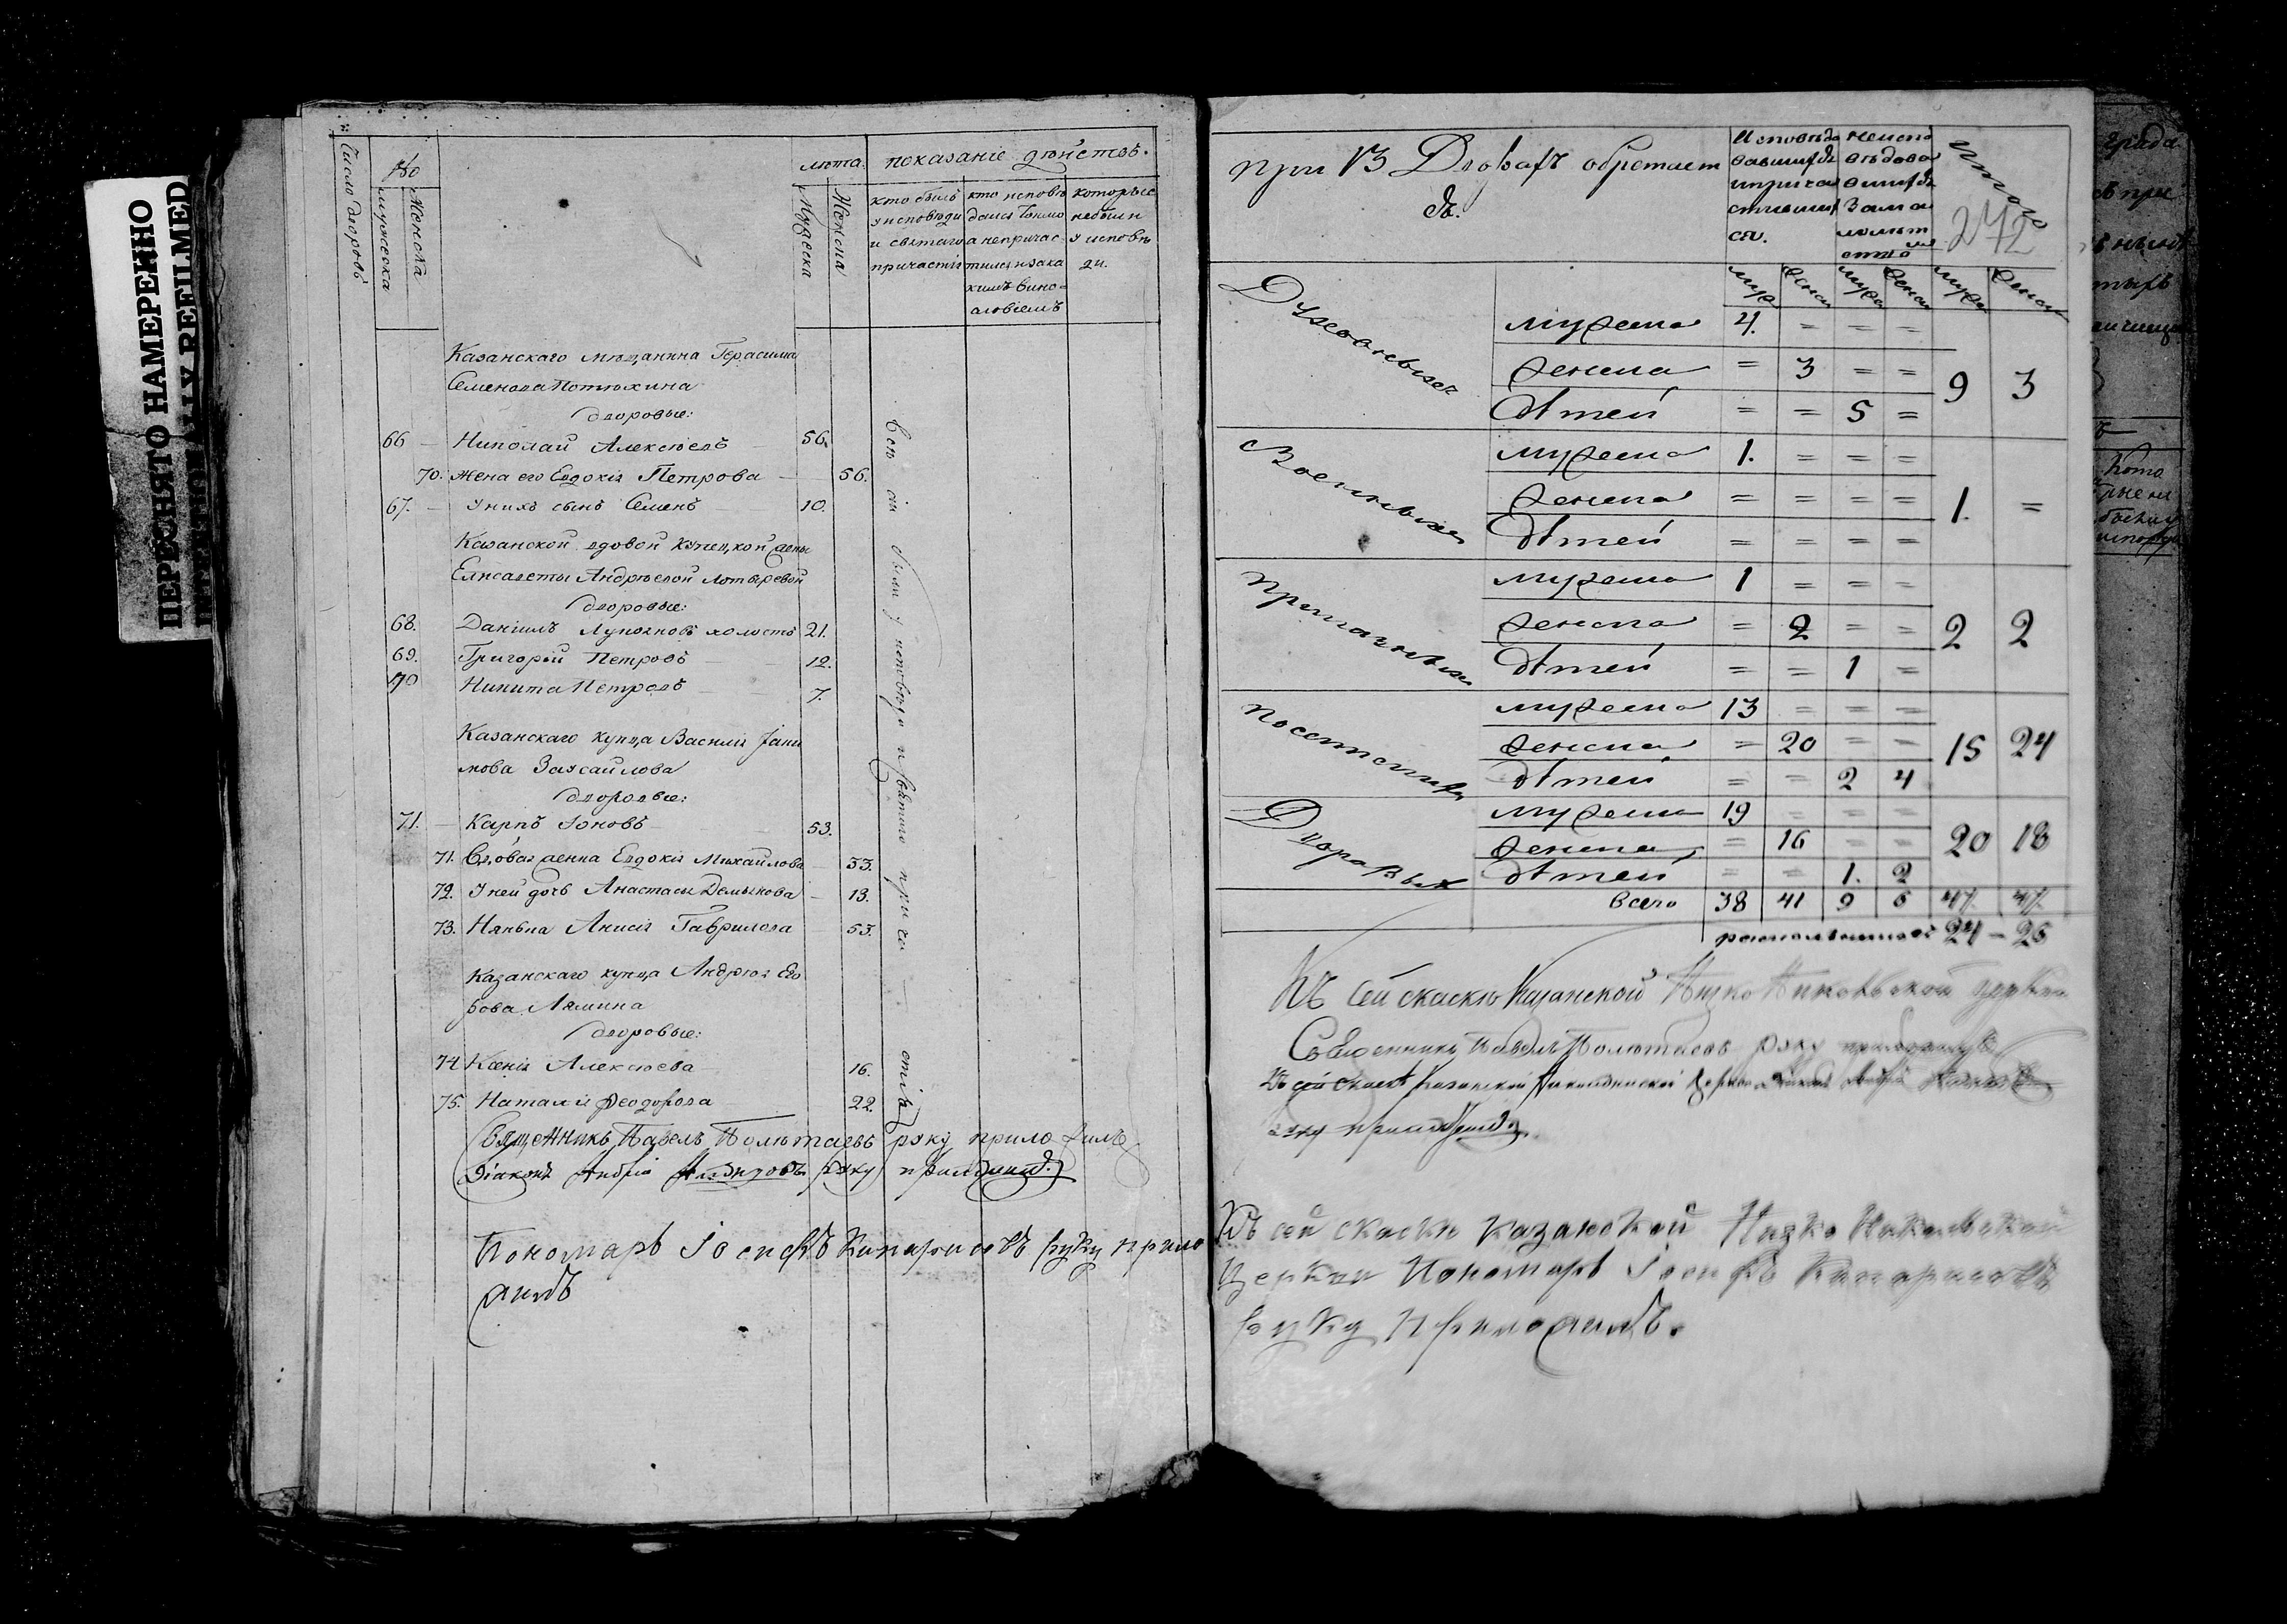 ПЕРЕСНЯТО НАМЕРЕННО
INTENTIONALLY REFILMED
Число дворовъ
№
мужеска
Женска
лѣта.
Мужеска
Женска
показаніе дѣйствъ.
кто былъ у исповѣди и святаго причастія
кто исповѣдался токмо а непричастился и за какимъ винословіемъ
которые небыли у исповѣди.
Казанскаго мѣщанина Герасима
Семенова Потюхина
дворовые:
66 Николай Алексѣевъ 56.
70. жена его Евдокія Петрова 56.
67. У нихъ сынъ Семенъ 10.
Казанской вдовой купецкой жены
Елисаветы Андрѣевой Лотыревой
дворовые:
68. Даніилъ Лукояновъ холостъ 21.
69. Григорій Петровъ 12.
70 Никита Петровъ 7.
Казанскаго купца Василія
Заусайлова
дворовые:
71. Карпъ Іоновъ 53.
71. Вдовая женка Евдокія Михайлова 33.
72. У ней дочь Анастасія Демьянова 13.
73. Нянька Анисія Гаврилова 53.
Казанскаго купца Андрея Его
рова Лямина
дворовые:
74 Ксенія Алексѣева 16.
75. Наталія Феодорова 22.
всѣ сіи были у исповѣди и святаго причастія
Священникъ Павелъ Полетаевъ руку приложилъ
Діаконъ Андрей руку приложилъ.
Пономарь Іосифъ Кипарисовъ руку прило
жилъ
при 13 Дворахъ обретает
ся.
Исповѣдовавшихся и причастившихся.
Неисповѣдовавшихся за малолѣтствомъ
итого
272
муж женск муж женск муж женск
Духовныхъ
мужеска 4. = = =
женска = 3 = =
дѣтей = = 5 =
9 3
Военныхъ
мужеска 1. = = =
женска = = = =
дѣтей = = = =
1. =
Приказныхъ
мужеска 1 = = =
женска = 2 = =
дѣтей = = 1 =
2 2
Посацкихъ
мужеска 13 = = =
женска = 20 = =
дѣтей = = 2 4
15 24
Дворовыхъ
мужеска 19 = = =
женска = 16 = =
дѣтей = = 1. 2
20 18
всего 38 41 9 6 47. 47.
24 – 25
Къ сей скаскѣ Казанской Низко Никольской церкви
Священникъ Павелъ Полетаевъ руку приложилъ
Къ сей скаскѣ Казанской церкви Діаконъ Андрей
руку приложилъ.
Къ сей скаскѣ казанской Низко Никольской
Церкви Пономарь Іосифъ Кипарисовъ
руку приложилъ.